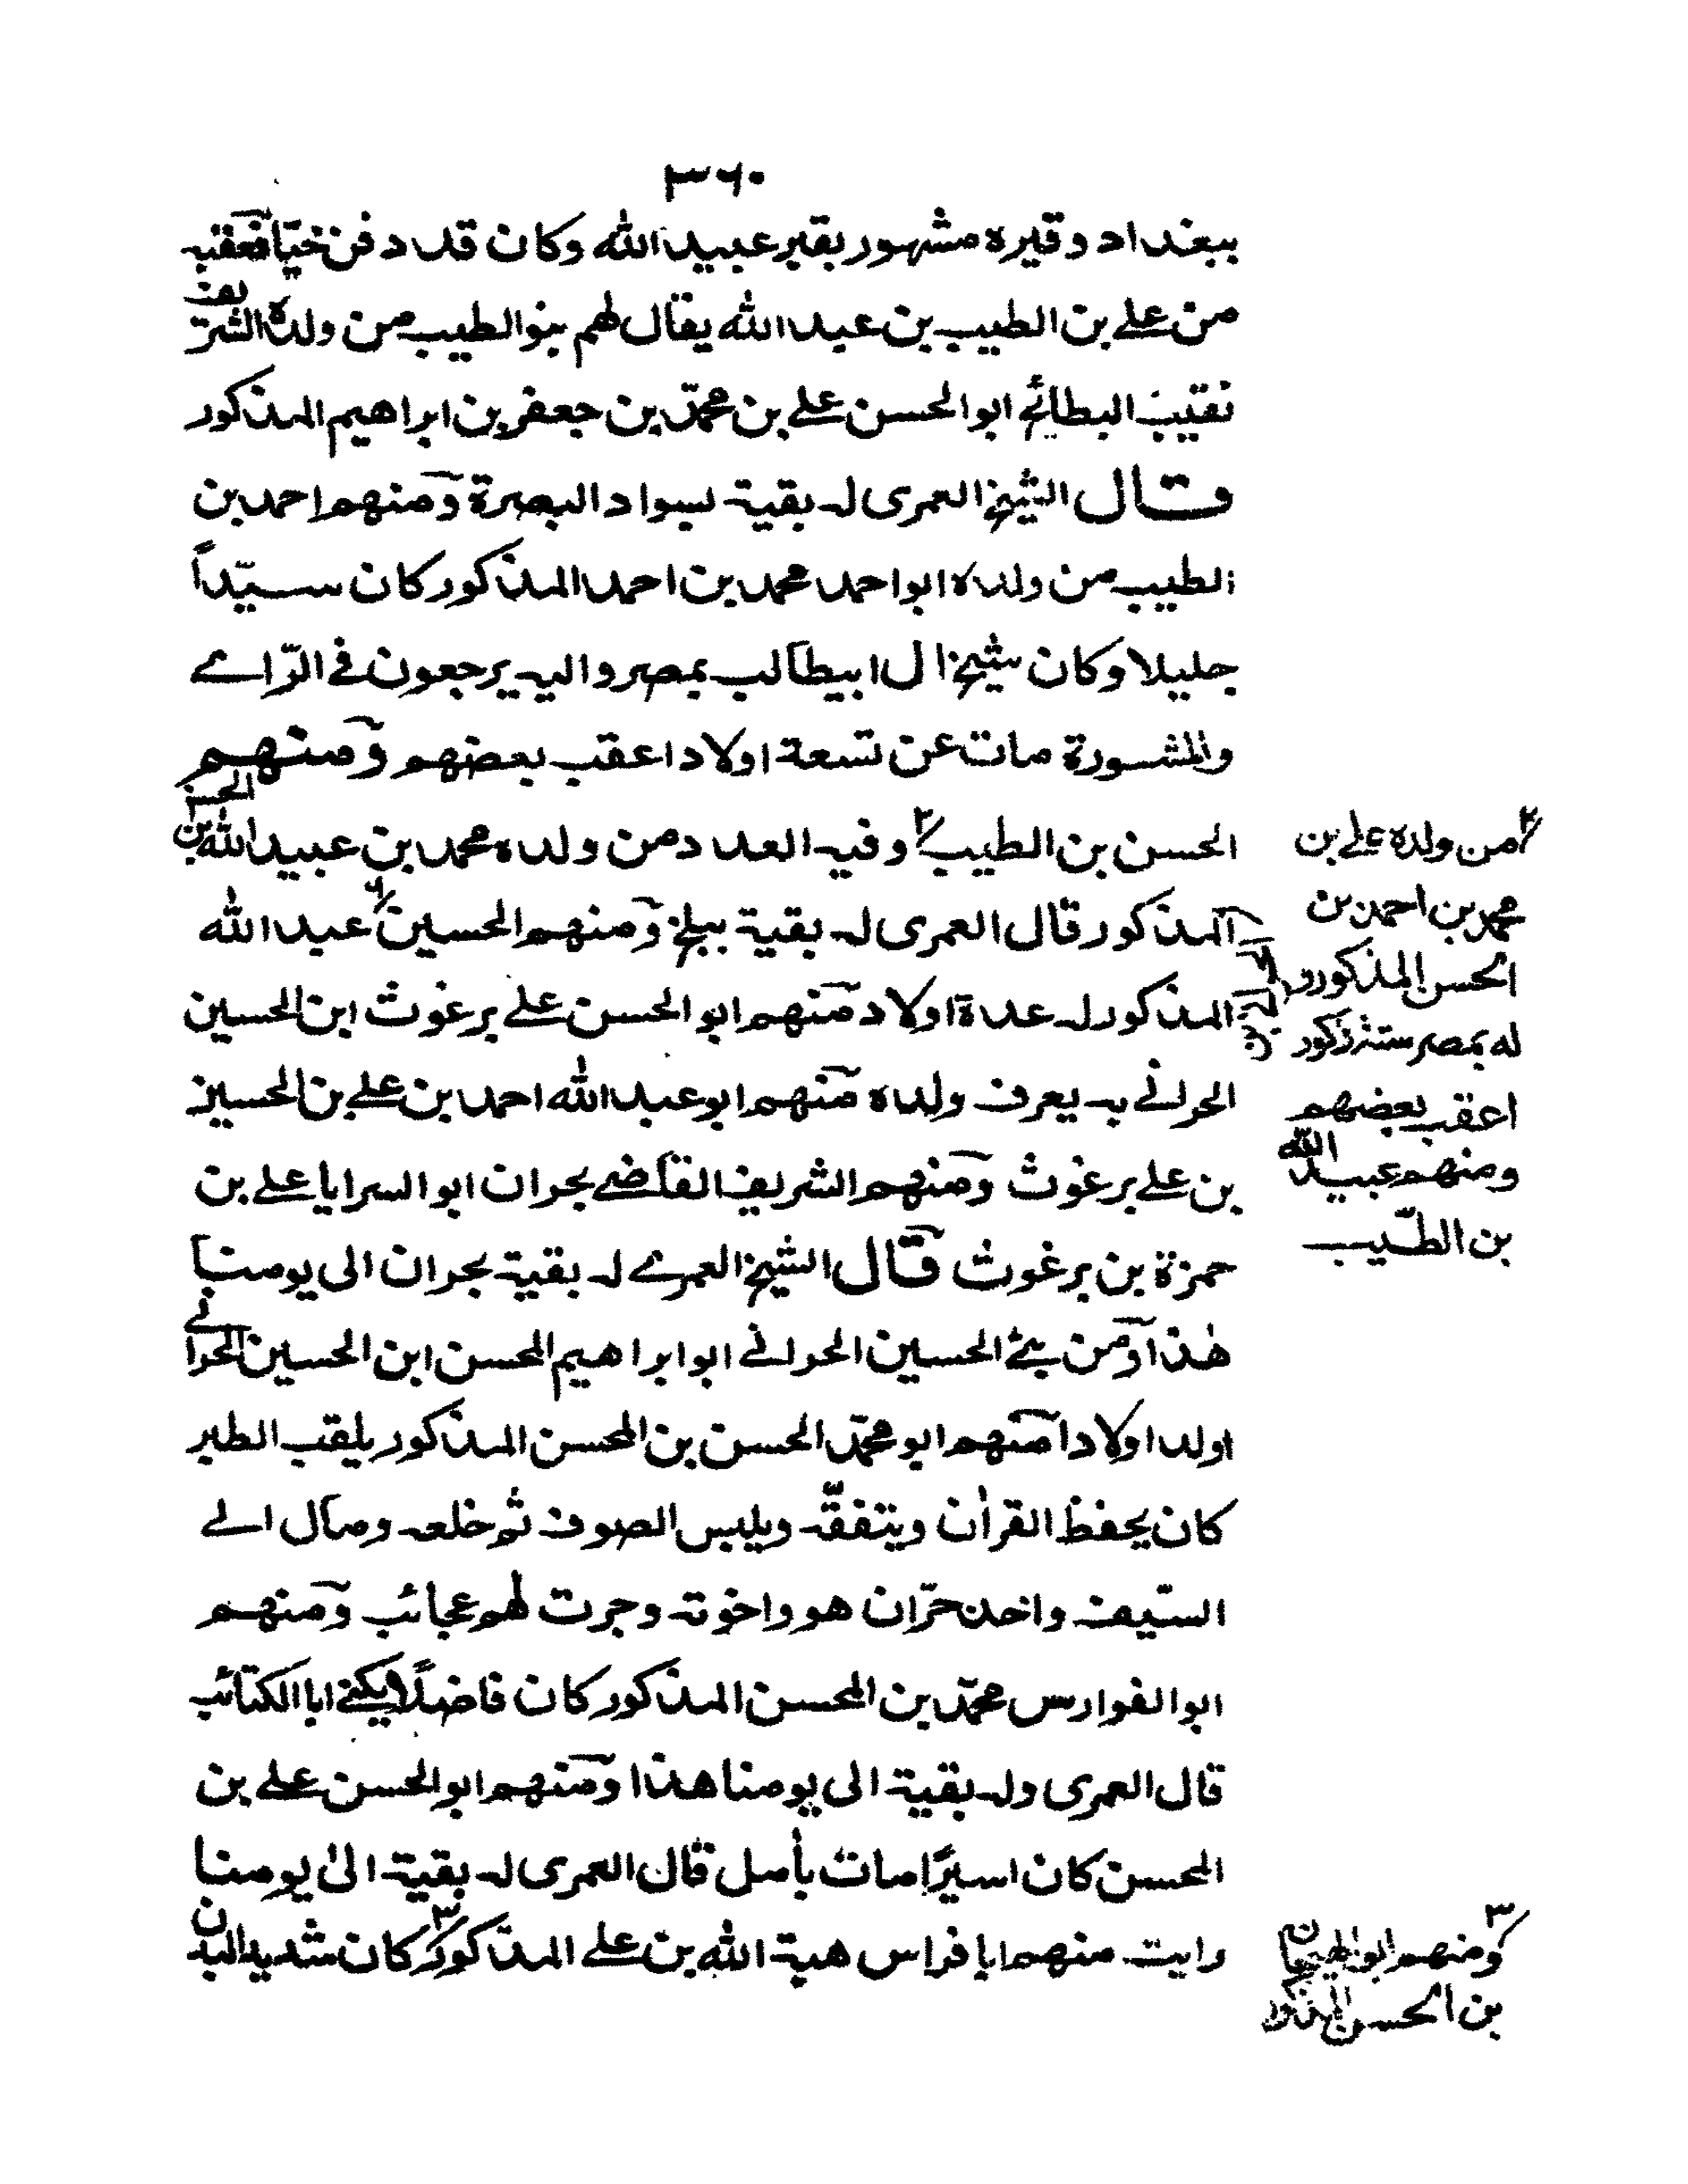 ٣٦٠
ببغداد وقبره مشهور بقبر عبيد الله وكان قد دفن حيا فعقبه
من علے بن الطيب بن عبد الله يقال لهم بنو الطيب من ولده الشريف
نقيب البطائح ابو الحسن علے بن محمّد بن جعفر بن ابراهيم المذكور
قال الشيخ العمرى له بقية بسواد البصرة ومنهم احمد بن
الطيب من ولده ابو احمد محمد بن احمد المذكور كان سيّداً
جليلا وكان شيخ ال ابيطالب بمصر واليه يرجعون فے الرّاے
والمشورة مات عن تسعة اولاد اعقب بعضهم ومنهم
الحسن بن الطيب ٢ وفيه العدد من ولده محمد بن عبيد الله بن الحسن
المذكور قال العمرى له بقية ببلخ ومنهم الحسين ٢ عبد الله
المذكور له عدة اولاد منهم ابو الحسن علے برغوث ابن الحسين
الحرانے به يعرف ولده منهم ابو عبد الله احمد بن علے بن الحسين
بن علے برغوث ومنهم الشريف القاضے بحران ابو السرايا علے بن
حمزة بن برغوث قال الشيخ العمرے له بقية بحران الى يومنا
هذا ومن بنے الحسين الحرانے ابو ابراهيم المحسن ابن الحسين الحرانے
اولد اولادا منهم ابو محمّد الحسن بن المحسن المذكور يلقب الطبر
كان يحفظ القراٰن ويتفقّه ويلبس الصوف ثم خلعه ومال الے
السّيف واخذ حرّان هو واخوته وجرت لهم عجائب ومنهم
ابو الفوارس محمّد بن المحسن المذكور كان فاضلًا يكنے ابا الكتائب
قال العمرى وله بقية الى يومنا هذا ومنهم ابو الحسن علے بن
المحسن كان اسيرًا مات بأمل قال العمرى له بقية الىٰ يومنا
رايت منهم ابا فراس هبة الله بن علے المذكور ٣ كان شديد البدن
٢ من ولده علے بن
محمد بن احمد بن
الحسن المذكور
له بمصر ستة ذكور
اعقب بعضهم
ومنهم عبيد الله
بن الطّيب
٣ ومنهم ابو الهيجا
بن الحسن المذكور